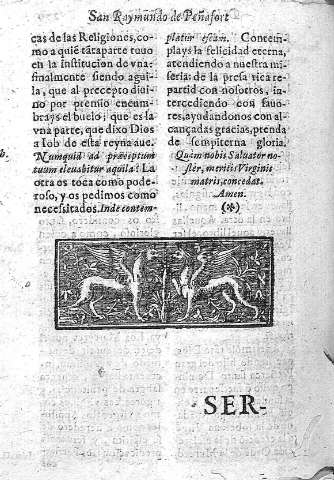 San Raymundo de Peñafort
cas de las Religiones, co-
mo a quiē tāta parte tuuo
en la institucion de vna:
finalmente siendo agui-
la, que al precepto diui-
no por premio encum-
brays el buelo; que es la
vna parte, que dixo Dios
a Iob de esta reyna aue.
Numquid ad præceptum
tuum eleuabitur aquila? La
otra os toca como pode-
roso, y os pedimos como
necessitados. Inde contem-
platur escam. Contem-
plays la felicidad eterna,
atendiendo a nuestra mi-
seria: de la presa rica re-
partid con nosotros, in-
tercediendo con fauo-
res, ayudandonos con al-
cançadas gracias, prenda
de sempiterna gloria.
Quam nobis Saluator no-
ster, meritis Virginis
matris, concedat.
Amen.
(*)
b.
SER-